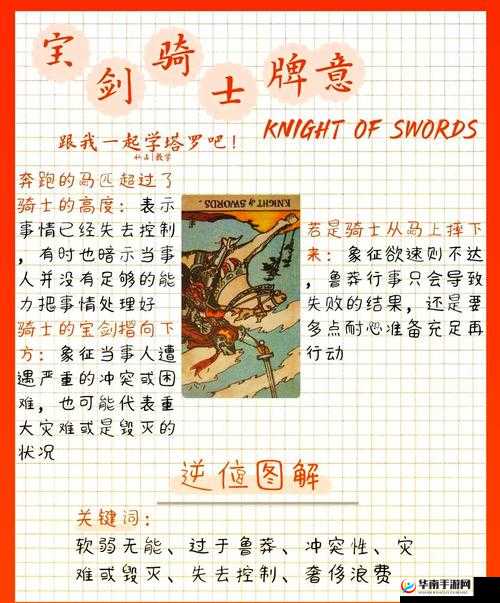 宝剑骑士牌意
KNIGHT OF SWORDS
跟我一起学塔罗吧！
奔跑的马匹超过了
骑士的高度：表示
事情已经失去控制
，有时也暗示当事
人并没有足够的能
力把事情处理好
骑士的宝剑指向下
方：象征当事人遭
遇严重的冲突或困
难，也可能代表重
大灾难或是毁灭的
状况
KNIGHT of SWORDS.
若是骑士从马上摔下
来：象征欲速则不达
，鲁莽行事只会导致
失败的结果，还是要
多点耐心准备充足再
行动
逆位图解
关键词：
软弱无能、过于鲁莽、冲突性、灾
难或毁灭、失去控制、奢侈浪费
华南手游网